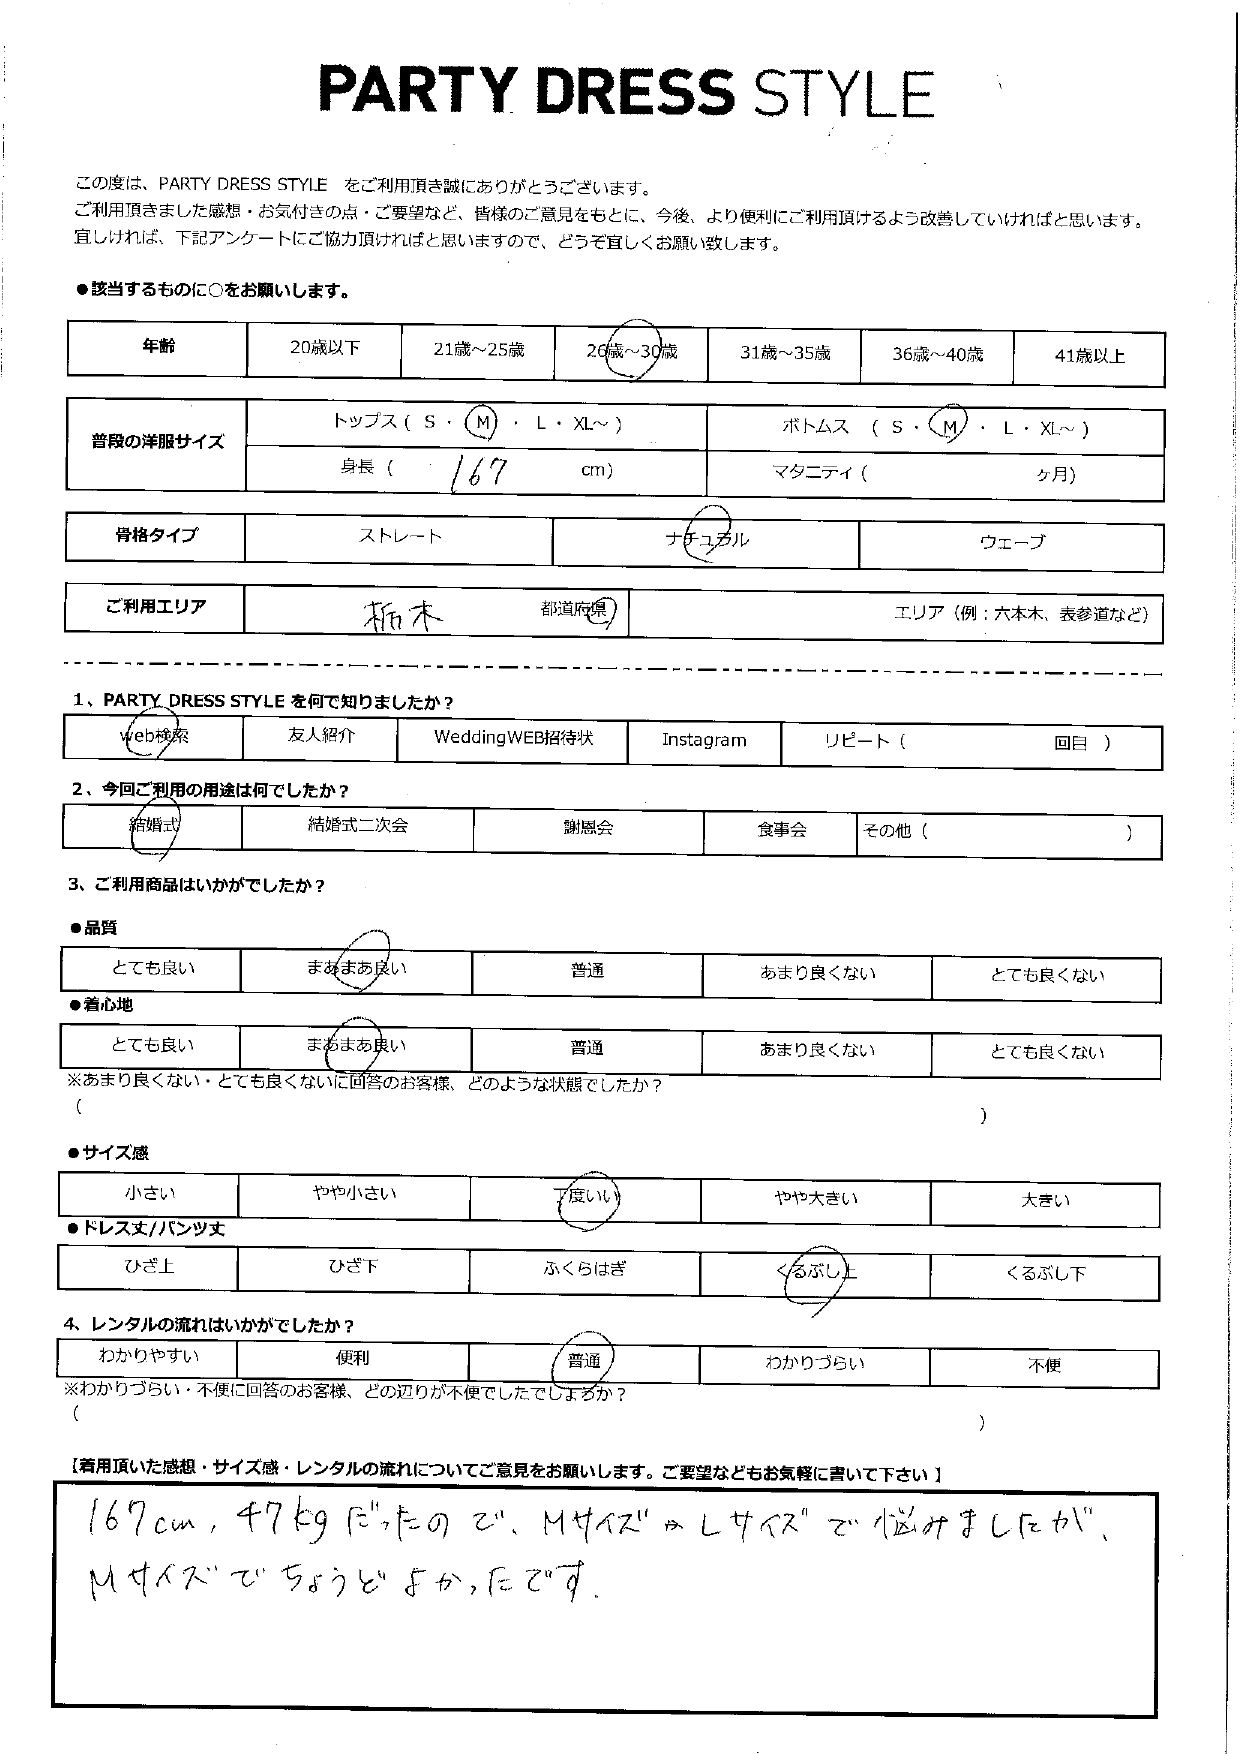 PARTY DRESS STYLE
この度は、PARTY DRESS STYLE をご利用頂き誠にありがとうございます。
ご利用頂きました感想・お気付きの点・ご要望など、皆様のご意見をもとに、今後、より便利にご利用頂けるよう改善していければと思います。
宜しければ、下記アンケートにご協力頂ければと思いますので、どうぞ宜しくお願い致します。
●該当するものに○をお願いします。
年齢 20歳以下 21歳～25歳 26歳～30歳 31歳～35歳 36歳～40歳 41歳以上
普段の洋服サイズ
トップス ( S ・ M ・ L ・ XL～ ) ボトムス ( S ・ M ・ L ・ XL～ )
身長 ( 167 cm) マタニティ ( ヶ月)
骨格タイプ ストレート ナチュラル ウェーブ
ご利用エリア 栃木 都道府県 エリア（例：六本木、表参道など）
1、PARTY DRESS STYLE を何で知りましたか？
web検索 友人紹介 WeddingWEB招待状 Instagram リピート ( 回目 )
2、今回ご利用の用途は何でしたか？
結婚式 結婚式二次会 謝恩会 食事会 その他 ( )
3、ご利用商品はいかがでしたか？
●品質
とても良い まあまあ良い 普通 あまり良くない とても良くない
●着心地
とても良い まあまあ良い 普通 あまり良くない とても良くない
※あまり良くない・とても良くないに回答のお客様、どのような状態でしたか？
( )
●サイズ感
小さい やや小さい 丁度いい やや大きい 大きい
●ドレス丈/パンツ丈
ひざ上 ひざ下 ふくらはぎ くるぶし上 くるぶし下
4、レンタルの流れはいかがでしたか？
わかりやすい 便利 普通 わかりづらい 不便
※わかりづらい・不便に回答のお客様、どの辺りが不便でしたでしょうか？
( )
【着用頂いた感想・サイズ感・レンタルの流れについてご意見をお願いします。ご要望などもお気軽に書いて下さい 】
167cm, 47kgだったので、MサイズかLサイズで悩みましたが、
Mサイズでちょうどよかったです.